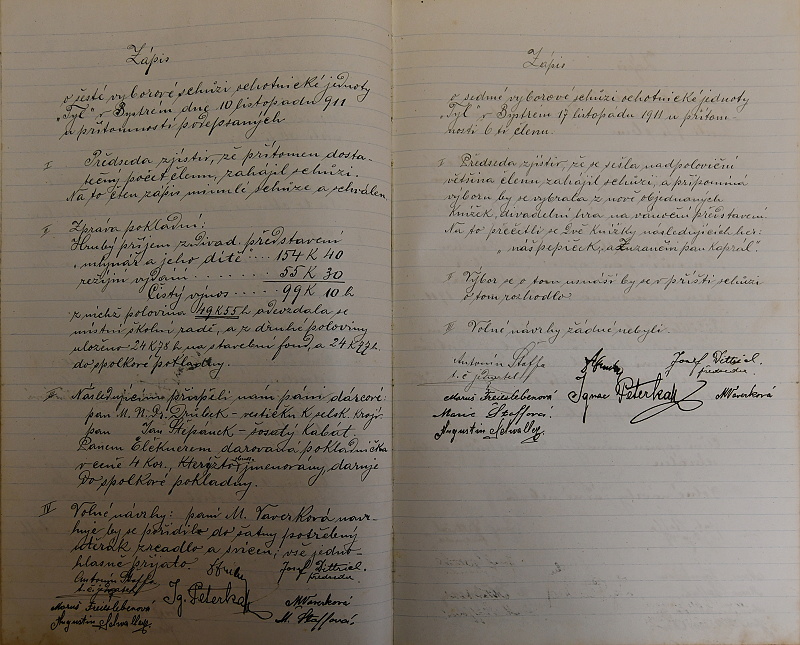 Zápis
o šesté výborové schůzi ochotnické jednoty
„Tyl“ v Bystrém dne 10 listopadu 911
u přítomnosti podepsaných
I Předseda zjistiv, že přítomen dosta-
tečný počet členu, zahájil schůzi.
Na to čten zápis minulé schůze a schválen.
II Zpráva pokladní:
Hrubý příjem z divad. představení
„mlynář a jeho dítě“ ... 154 K 40
režijní vydání ....... 55 K 30
Čistý výnos ..... 99 K 10 h
z nichž polovina 49 K 55 h odevzdala se
místní školní radě, a z druhé poloviny
uloženo 24 K 78 h na stavební fond, a 24 K 77 h.
do spolkové pokladny.
III Následujícímu přispěli nám páni dárcové:
pan M. Drübek – vestičku k selsk. kroji
pan Jan Štěpánek – šosatý kabát.
Panem darovaná pokladnička
v ceně 4 Kor., jmenovaný, daruje
do spolkové pokladny.
IV Volné návrhy: paní M. Vaverková navr-
huje by se pořídilo do šatny potřebný
utěrák zrcadlo a svícen; vše jedno-
hlasně přijato.
Antonín Štaffa
t. č. jednatel
Josef Dittrich
předseda.
Ig. Peterka
Maruš Freislebenová
Augustin Schwalley
MVaverková
M. Štaffová
Zápis
o sedmé výborové schůzi ochotnické jednoty
„Tyl“ v Bystrém 17 listopadu 1911 u přítom-
nosti 6 ti členu.
I Předseda zjistiv, že se sešla nadpoloviční
většina členu zahájil schůzi, a připomíná
výboru by se vybrala z nově objednaných
knížek, divadelní hra na vánoční představení.
Na to přečetli se dvě knížky následujících her:
„náš pepíček, a Zuzančin pan kaprál“.
II Výbor se o tom usnáší by se v příští schůzi
o tom rozhodlo
III Volné návrhy žádné nebyli.
Antonín Štaffa
t. č. jednatel
Josef Dittrich.
předseda.
Maruš Freislebenová
Ignac Peterka
MVaverková
Marie Štaffová
Augustin Schwalley